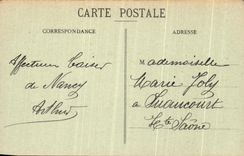 CARTE POSTALE
CORRESPONDANCE
ADRESSE
Affectueux baiser
de Nancy
Arthur
Mademoiselle
Marie Joly
à
Hte Saône